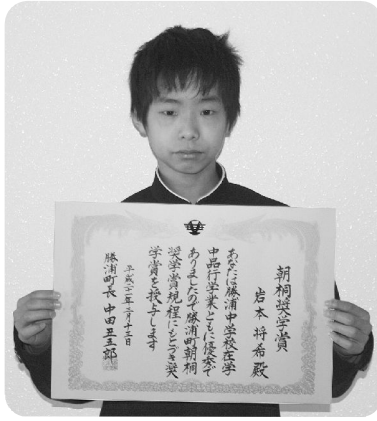 朝桐奨学賞
岩本将希殿
あなたは勝浦中学校在学
中品行学業ともに優秀で
ありましたので勝浦町朝桐
奨学賞規程にもとづき奨
学賞を授与します
平成二十二年三月十三日
勝浦町長 中田丑五郎